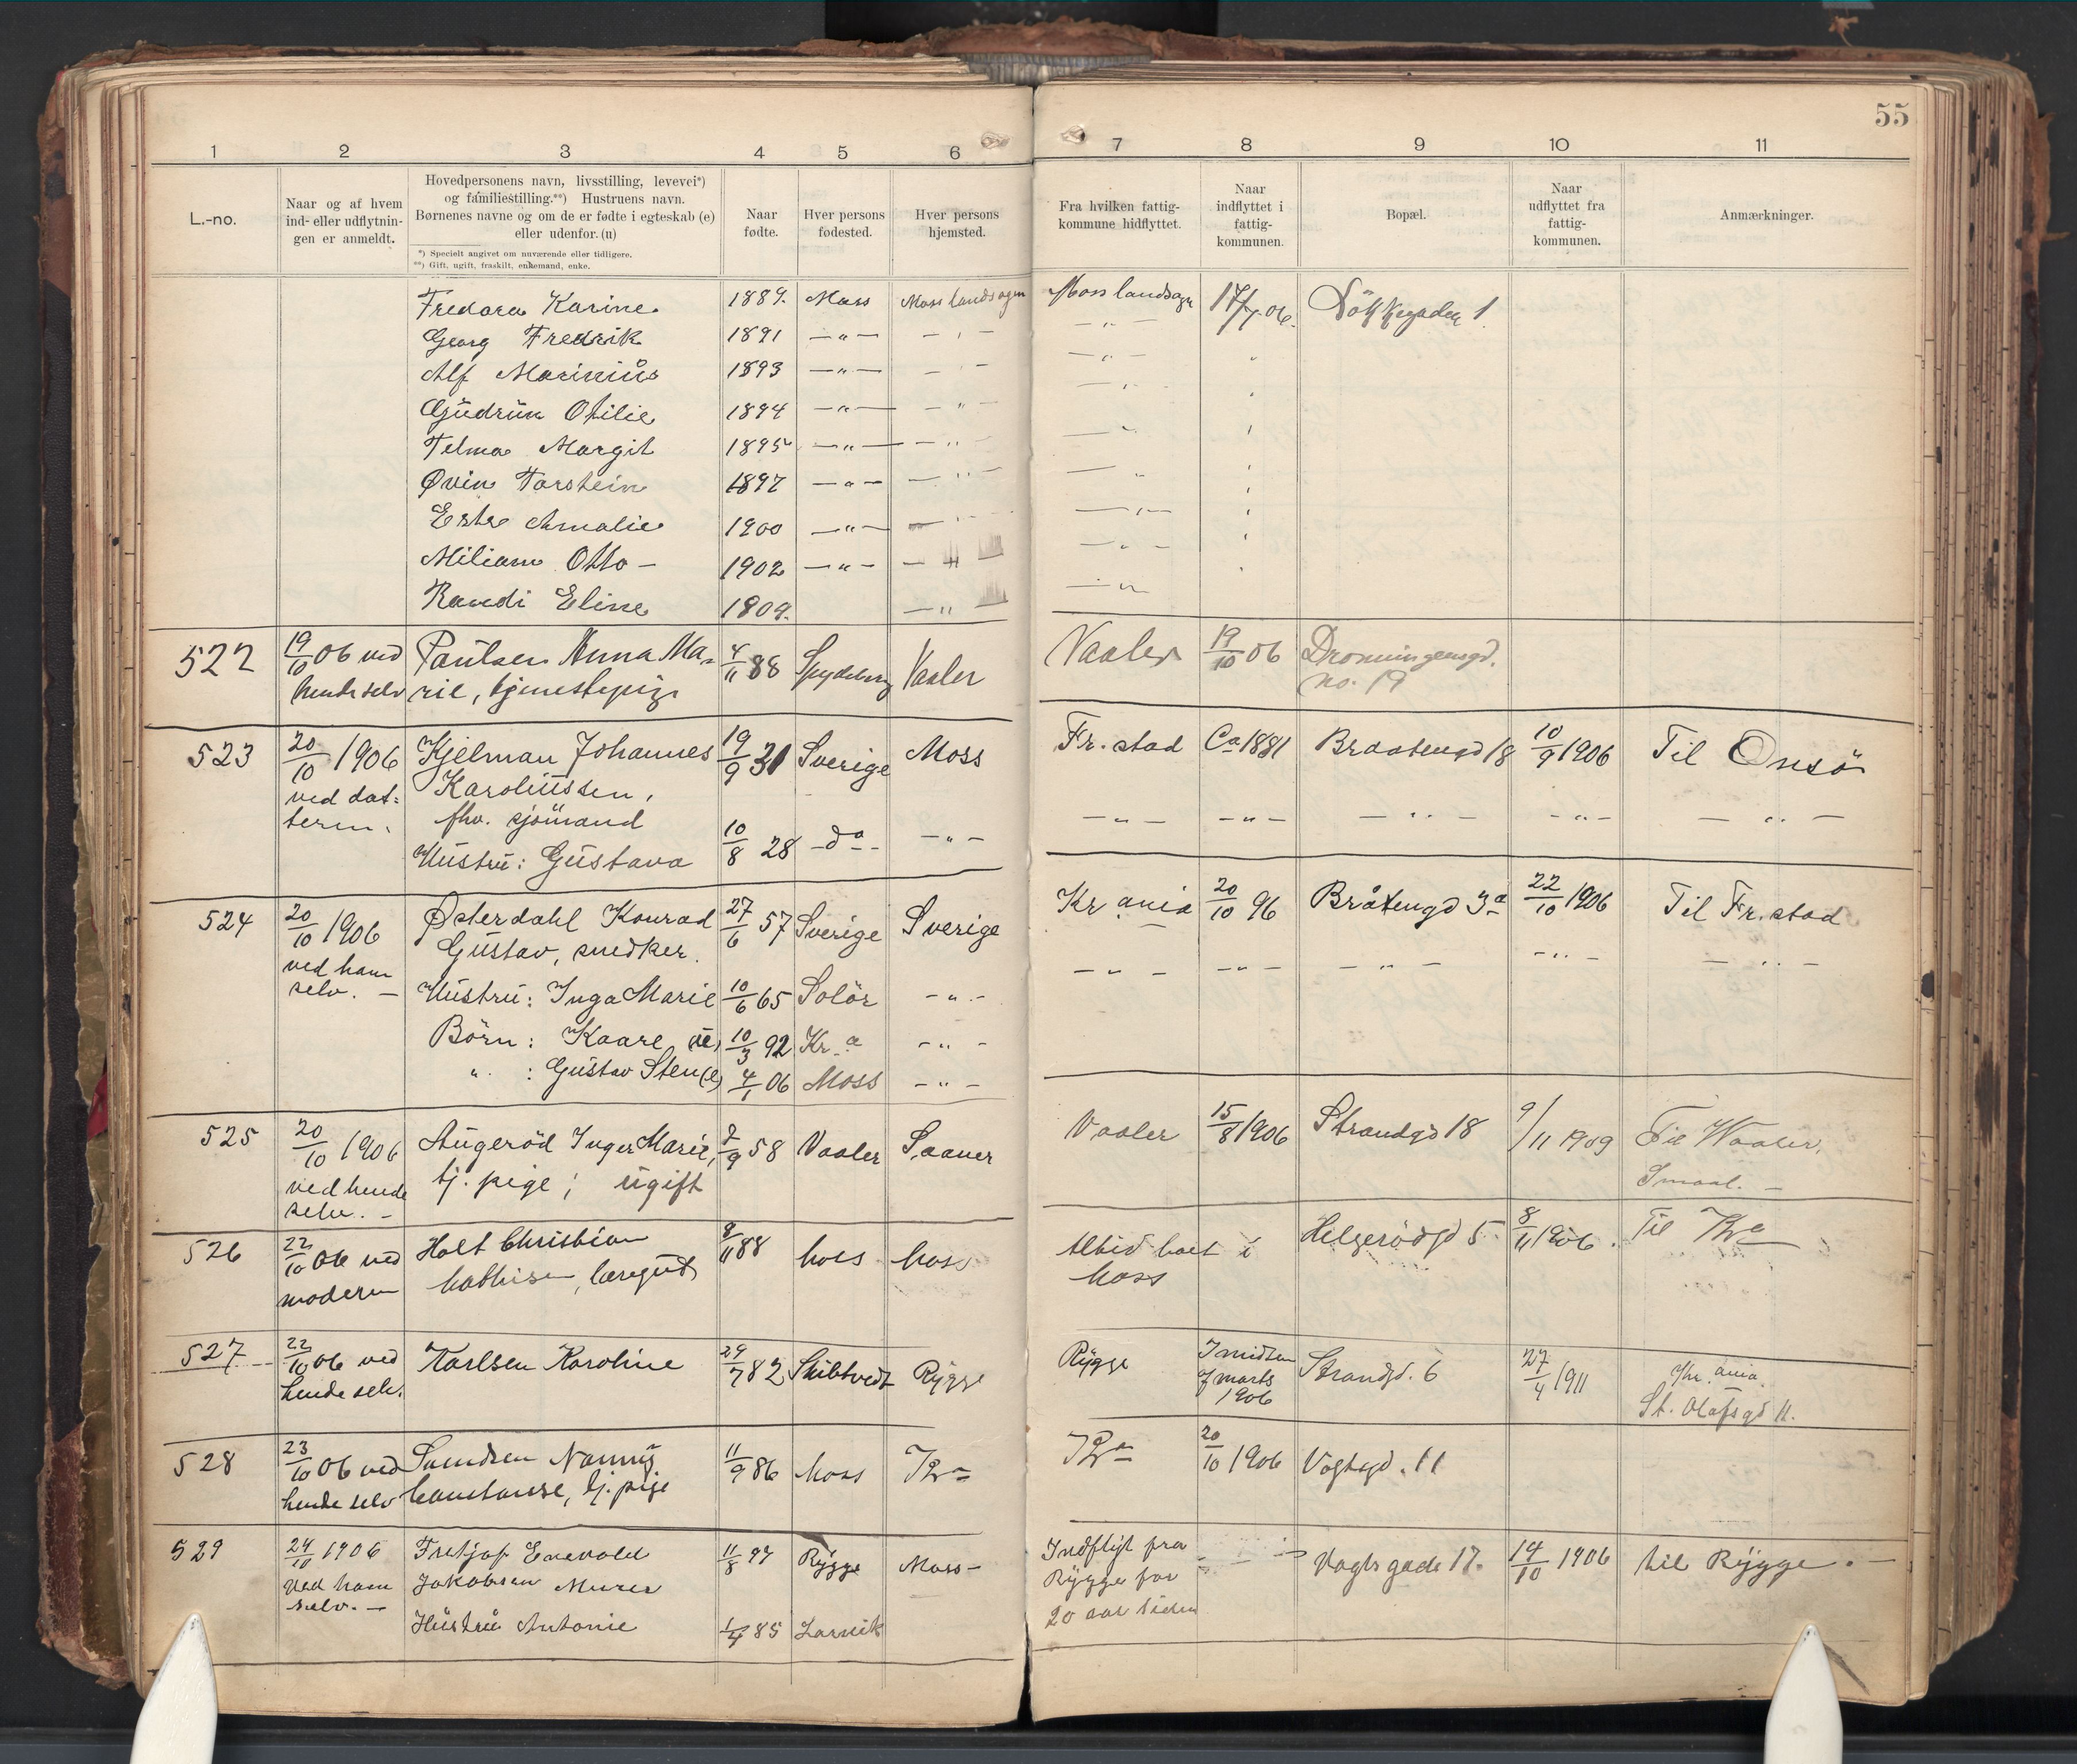 55
1 2 3 4 5 6 7 8 9 10 11
L.-no.
Naar og af hvem
ind- eller udflytnin-
gen er anmeldt.
Hovedpersonens navn, livsstilling, levevei*)
og familiestilling.**) Hustruens navn.
Børnenes navne og om de er fødte i egteskab (e)
eller udenfor. (u)
*) Specielt angivet om nuværende eller tidligere.
**) Gift, ugift, fraskilt, enkemand, enke.
Naar
fødte.
Hver persons
fødested.
Hver persons
hjemsted.
Fra hvilken fattig-
kommune hidflyttet.
Naar
indflyttet i
fattig-
kommunen.
Bopæl.
Naar
udflyttet fra
fattig-
kommunen.
Anmærkninger.
Fredara Karine 1889. Moss Moss landsogn Moss landsogn 17/7 06. 1
Georg Fredrik 1891 —"— — " — — " —
Alf Marinius 1893 —"— — " — — " —
Gudrun Otilie 1894 —"— — " — — " —
Telma Margit 1895 —"— — " — — " —
Øvin Torstein 1897 —"— — " — — " —
Ester Amalie 1900 —"— — " — — " —
Miliam Otto — 1902 —"— — " — — " —
Randi Eline 1909. —"— — " —
522 19/10 06 ved Paulsen Anna Ma- 4/11 88 Spydeberg Vaaler Vaaler 19/10 06 Dronningensgd.
hende selv rie, tjenestepige no. 19
523 20/10 1906 Kjelman Johannes 19/9 31 Sverige Moss Fr.stad Ca 1881 Braatengd 18 10/9 1906 Til Onsö
ved dat- Karolinssen,
teren. fhv. sjömand
Hustru: Gustava 10/8 28 do — " — — " — — " — — " — — " — — " —
524 20/10 1906 Østerdahl Konrad 27/6 57 Sverige Sverige Kr.ania 20/10 96 Bråtengd 3a 22/10 1906 Til Fr.stad
ved ham Gustav, snedker.
selv. — Hustru: Inga Marie 10/6 65 Solör — " — — " — — " — — " — — " — — " —
Börn: Kaare (e) 10/3 92 Kr.a — " —
" : Gustav Sten (e) 4/1 06 Moss — " —
525 20/10 1906 Augeröd Inger Marie, 9/9 58 Vaaler Saaner Vaaler 15/8 1906 Strandgd 18 9/11 1909 Til Waaler,
ved hende tj. pige; ugift Smaal. —
selv. —
526 22/10 06 ved Holt Christian 8/11 88 Moss Moss Altid boet i Helgerödgd 5 8/11 1906. Til Kra
moderen Mathisen, læregut Moss
527 22/10 06 ved Karlsen Karoline 29/7 82 Skibtvedt Rygge Rygge I midten Strandgd. 6 27/4 1911 Kr.ania.
hende selv. af marts St. Olafsgd 11.
1906
528 23/10 06 ved Svendsen Nanny 11/9 86 Moss Kra Kra 20/10 1906 Vogtsgd. 11
hende selv Constanse, tj. pige
529 24/10 1906 Fretjof Enevold 11/8 Rygge Moss — Indflyt fra Vogts gade 17. 14/10 1906 til Rygge. —
Ved ham Jakobsen Murer Rygge for
selv. — 20 aar siden
Hustru Antonie 1/4 85 Larvik